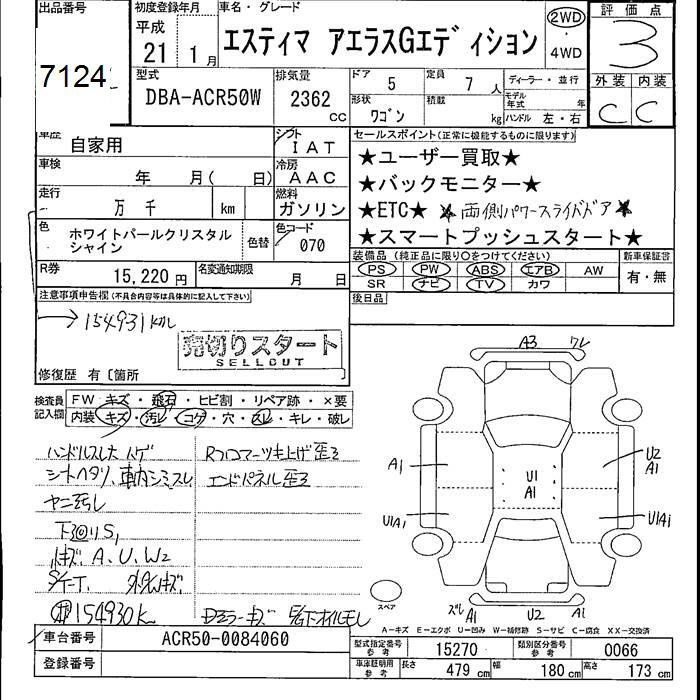 出品番号
7124
初度登録年月
平成
21 1月
車名・グレード
エスティマ アエラスGエディション
2WD
・
4WD
評価点
3
外装 内装
C C
型式
DBA-ACR50W
排気量
2362 CC
ドア 5
定員 7 人
形状 ワゴン
積載 kg
ディーラー・並行
モデル年式 年
ハンドル 左・右
車歴 自家用
シフト IAT
車検 年 月( 日)
冷房 AAC
走行 万 千 km
燃料 ガソリン
色 ホワイトパールクリスタル
シャイン
色替
色コード 070
R券 15,220 円
名変通知期限 月 日
セールスポイント(正常に機能するものに限ります)
★ユーザー買取★
★バックモニター★
★ETC★ ★両側パワースライドドア★
★スマートプッシュスタート★
装備品(純正品に限り○をつけてください)
PS PW ABS エアB AW
SR ナビ TV カワ
新車保証書
有・無
後日品
注意事項申告欄(不具合内容等は具体的に記入して下さい)
→154931km
売切りスタート
SELLCUT
修復歴 有〔箇所
検査員
記入欄
FW キズ・飛石・ヒビ割・リペア跡・×要
内装 キズ・汚レ・コゲ・穴・スレ・キレ・破レ
ハンドルスレ
シートヘタリ、車内シミスレ
ヤニ汚レ
下回りS,
A、U、W2
154930k
Rフロアー突上げ歪ミ
エンドパネル歪ミ
Dミラーキズ
A3
A1
U1A1
U1
A1
U2
A1
U1A1
A1
U2
A1
スペア
A-キズ E-エクボ U-凹み W-補修跡 S-サビ C-腐食 XX-交換済
車台番号 ACR50-0084060
登録番号
型式指定番号
参考
15270
類別区分番号
参考
0066
車庫証明用
参考
長さ 479 cm
幅 180 cm
高さ 173 cm